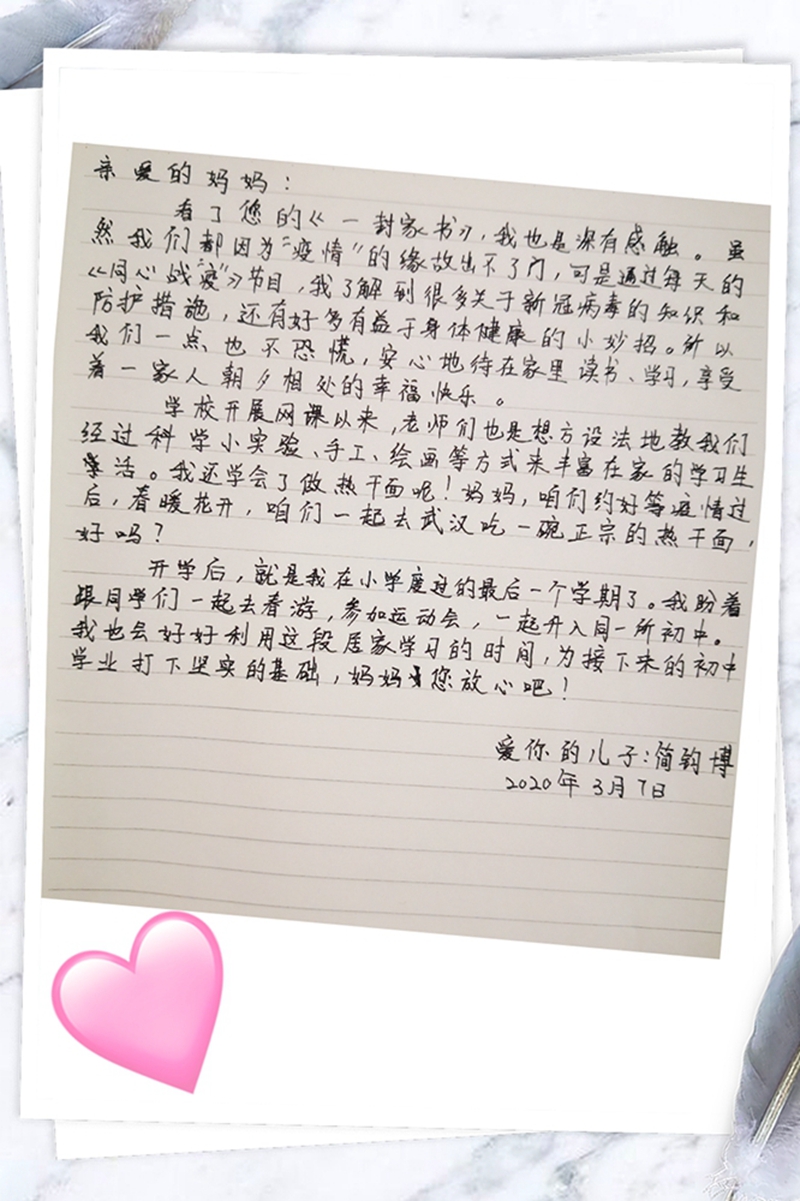 亲爱的妈妈：
看了您的《一封家书》，我也是深有感触。虽
然我们都因为“疫情”的缘故出不了门，可是通过每天的
《同心战“疫”》节目，我了解到很多关于新冠病毒的知识和
防护措施，还有好多有益于身体健康的小妙招。所以
我们一点也不恐慌，安心地待在家里读书、学习，享受
着一家人朝夕相处的幸福快乐。
学校开展网课以来，老师们也是想方设法地教我们
经过科学小实验、手工、绘画等方式来丰富在家的学习生
活。我还学会了做热干面呢！妈妈，咱们约好等疫情过
后，春暖花开，咱们一起去武汉吃一碗正宗的热干面，
好吗？
开学后，就是我在小学度过的最后一个学期了。我盼着
跟同学们一起去春游，参加运动会，一起升入同一所初中。
我也会好好利用这段居家学习的时间，为接下来的初中
学业打下坚实的基础，妈妈您放心吧！
爱你的儿子：简钧博
2020年3月7日